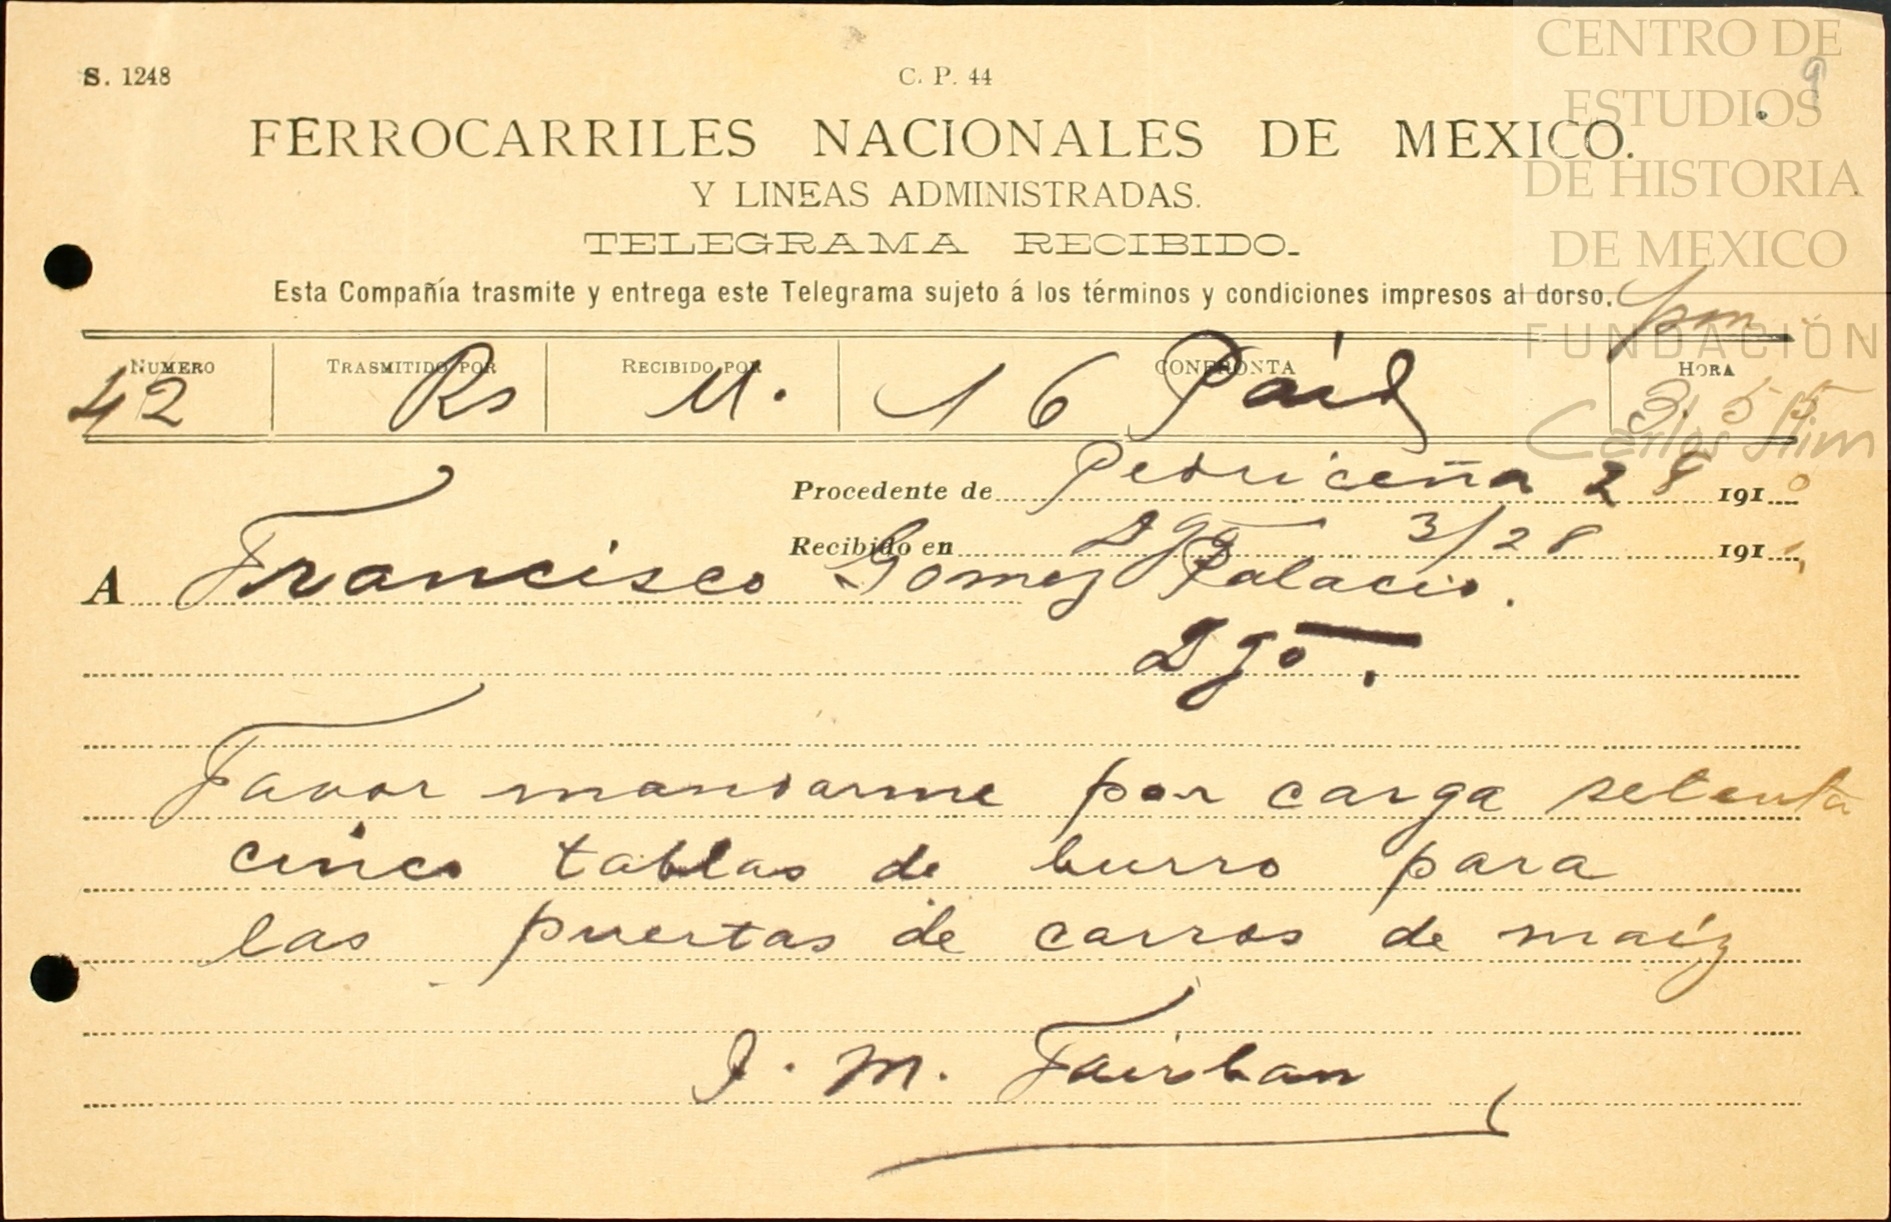 CENTRO DE
ESTUDIOS
DE HISTORIA
DE MEXICO
FUNDACIÓN
Carlos Slim
9
S. 1248 C. P. 44
FERROCARRILES NACIONALES DE MEXICO.
Y LINEAS ADMINISTRADAS.
TELEGRAMA RECIBIDO.
Esta Compañía trasmite y entrega este Telegrama sujeto á los términos y condiciones impresos al dorso.
pm
NUMERO TRASMITIDO POR RECIBIDO POR CONFRONTA HORA
42 Rs M. 16 Paid 3.55
Procedente de Pedriceña 28 1910
Recibido en Dgo 3/28 191
A Francisco Gomez Palacio.
Dgo.
Favor mandarme por carga setenta
cinco tablas de burro para
las puertas de carros de maíz
J. M. Fairban